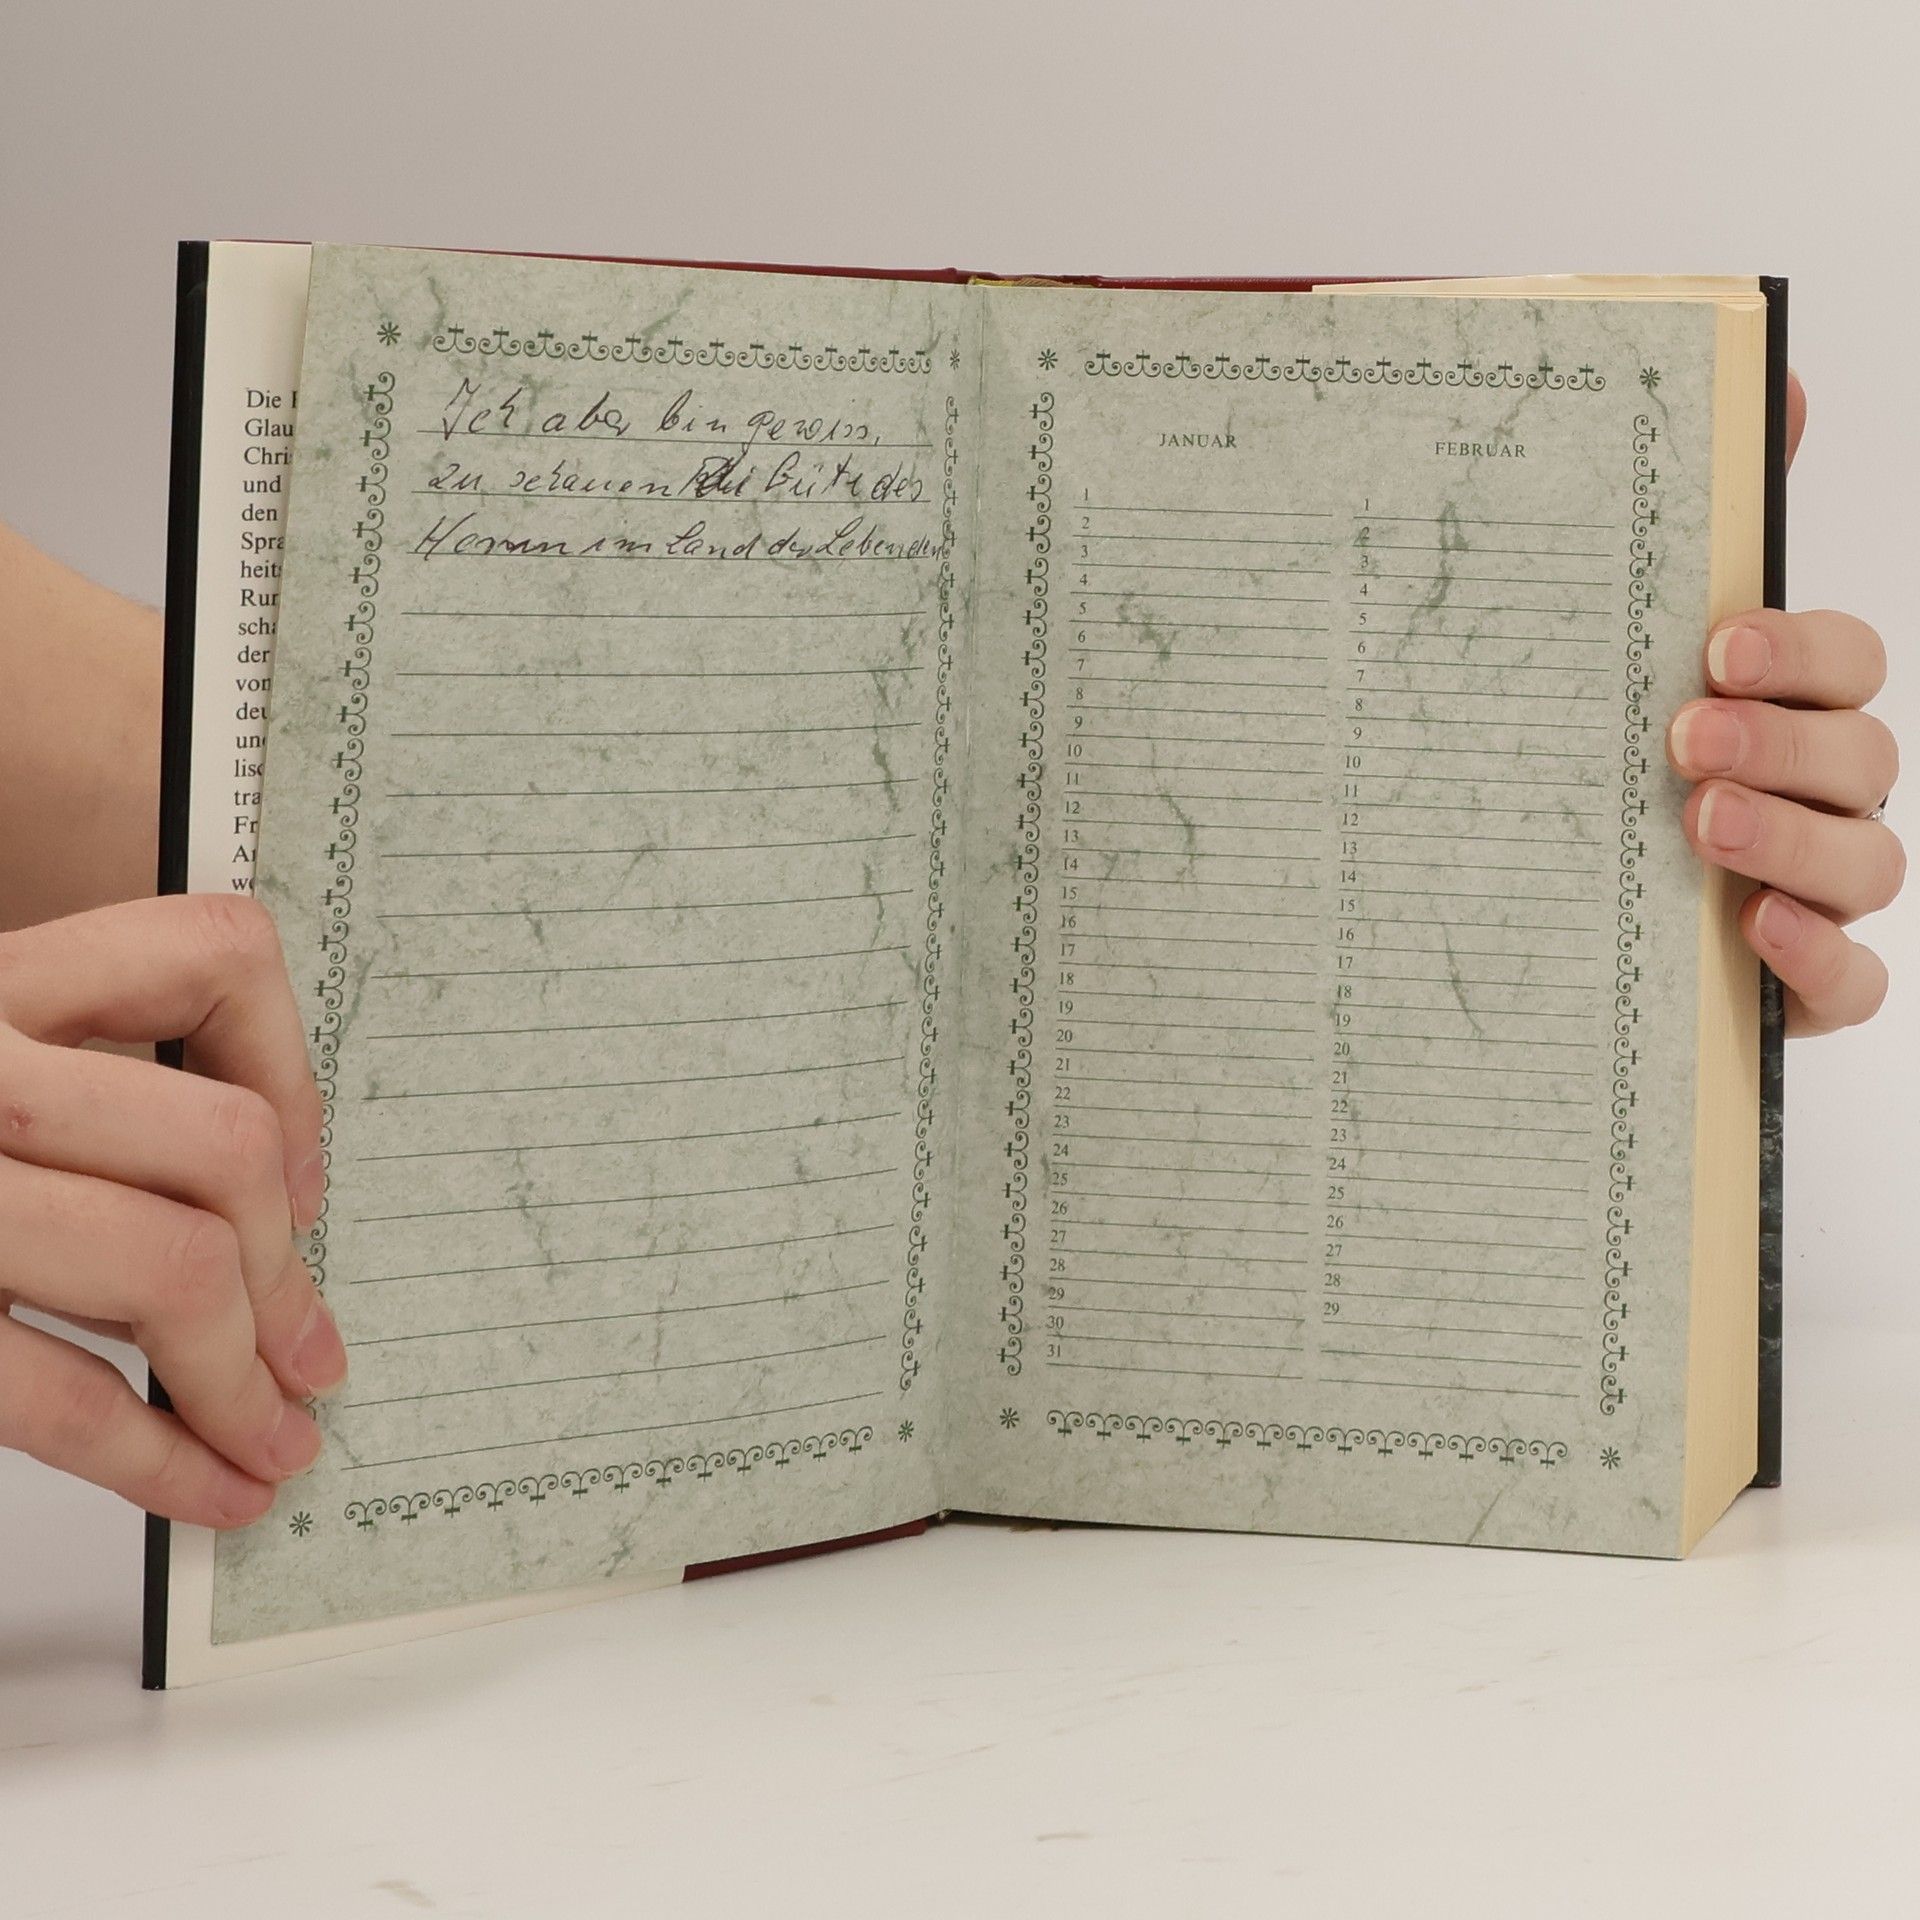 Die
Glau
Chri
und
den
Spra
heit
Run
scha
der
von
deu
und
lisc
tra
Fr
Ar
we
Ich aber bin gewiss,
zu schauen die Güte des
Herrn im Land der Lebenden
JANUAR
1
2
3
4
5
6
7
8
9
10
11
12
13
14
15
16
17
18
19
20
21
22
23
24
25
26
27
28
29
30
31
FEBRUAR
1
2
3
4
5
6
7
8
9
10
11
12
13
14
15
16
17
18
19
20
21
22
23
24
25
26
27
28
29